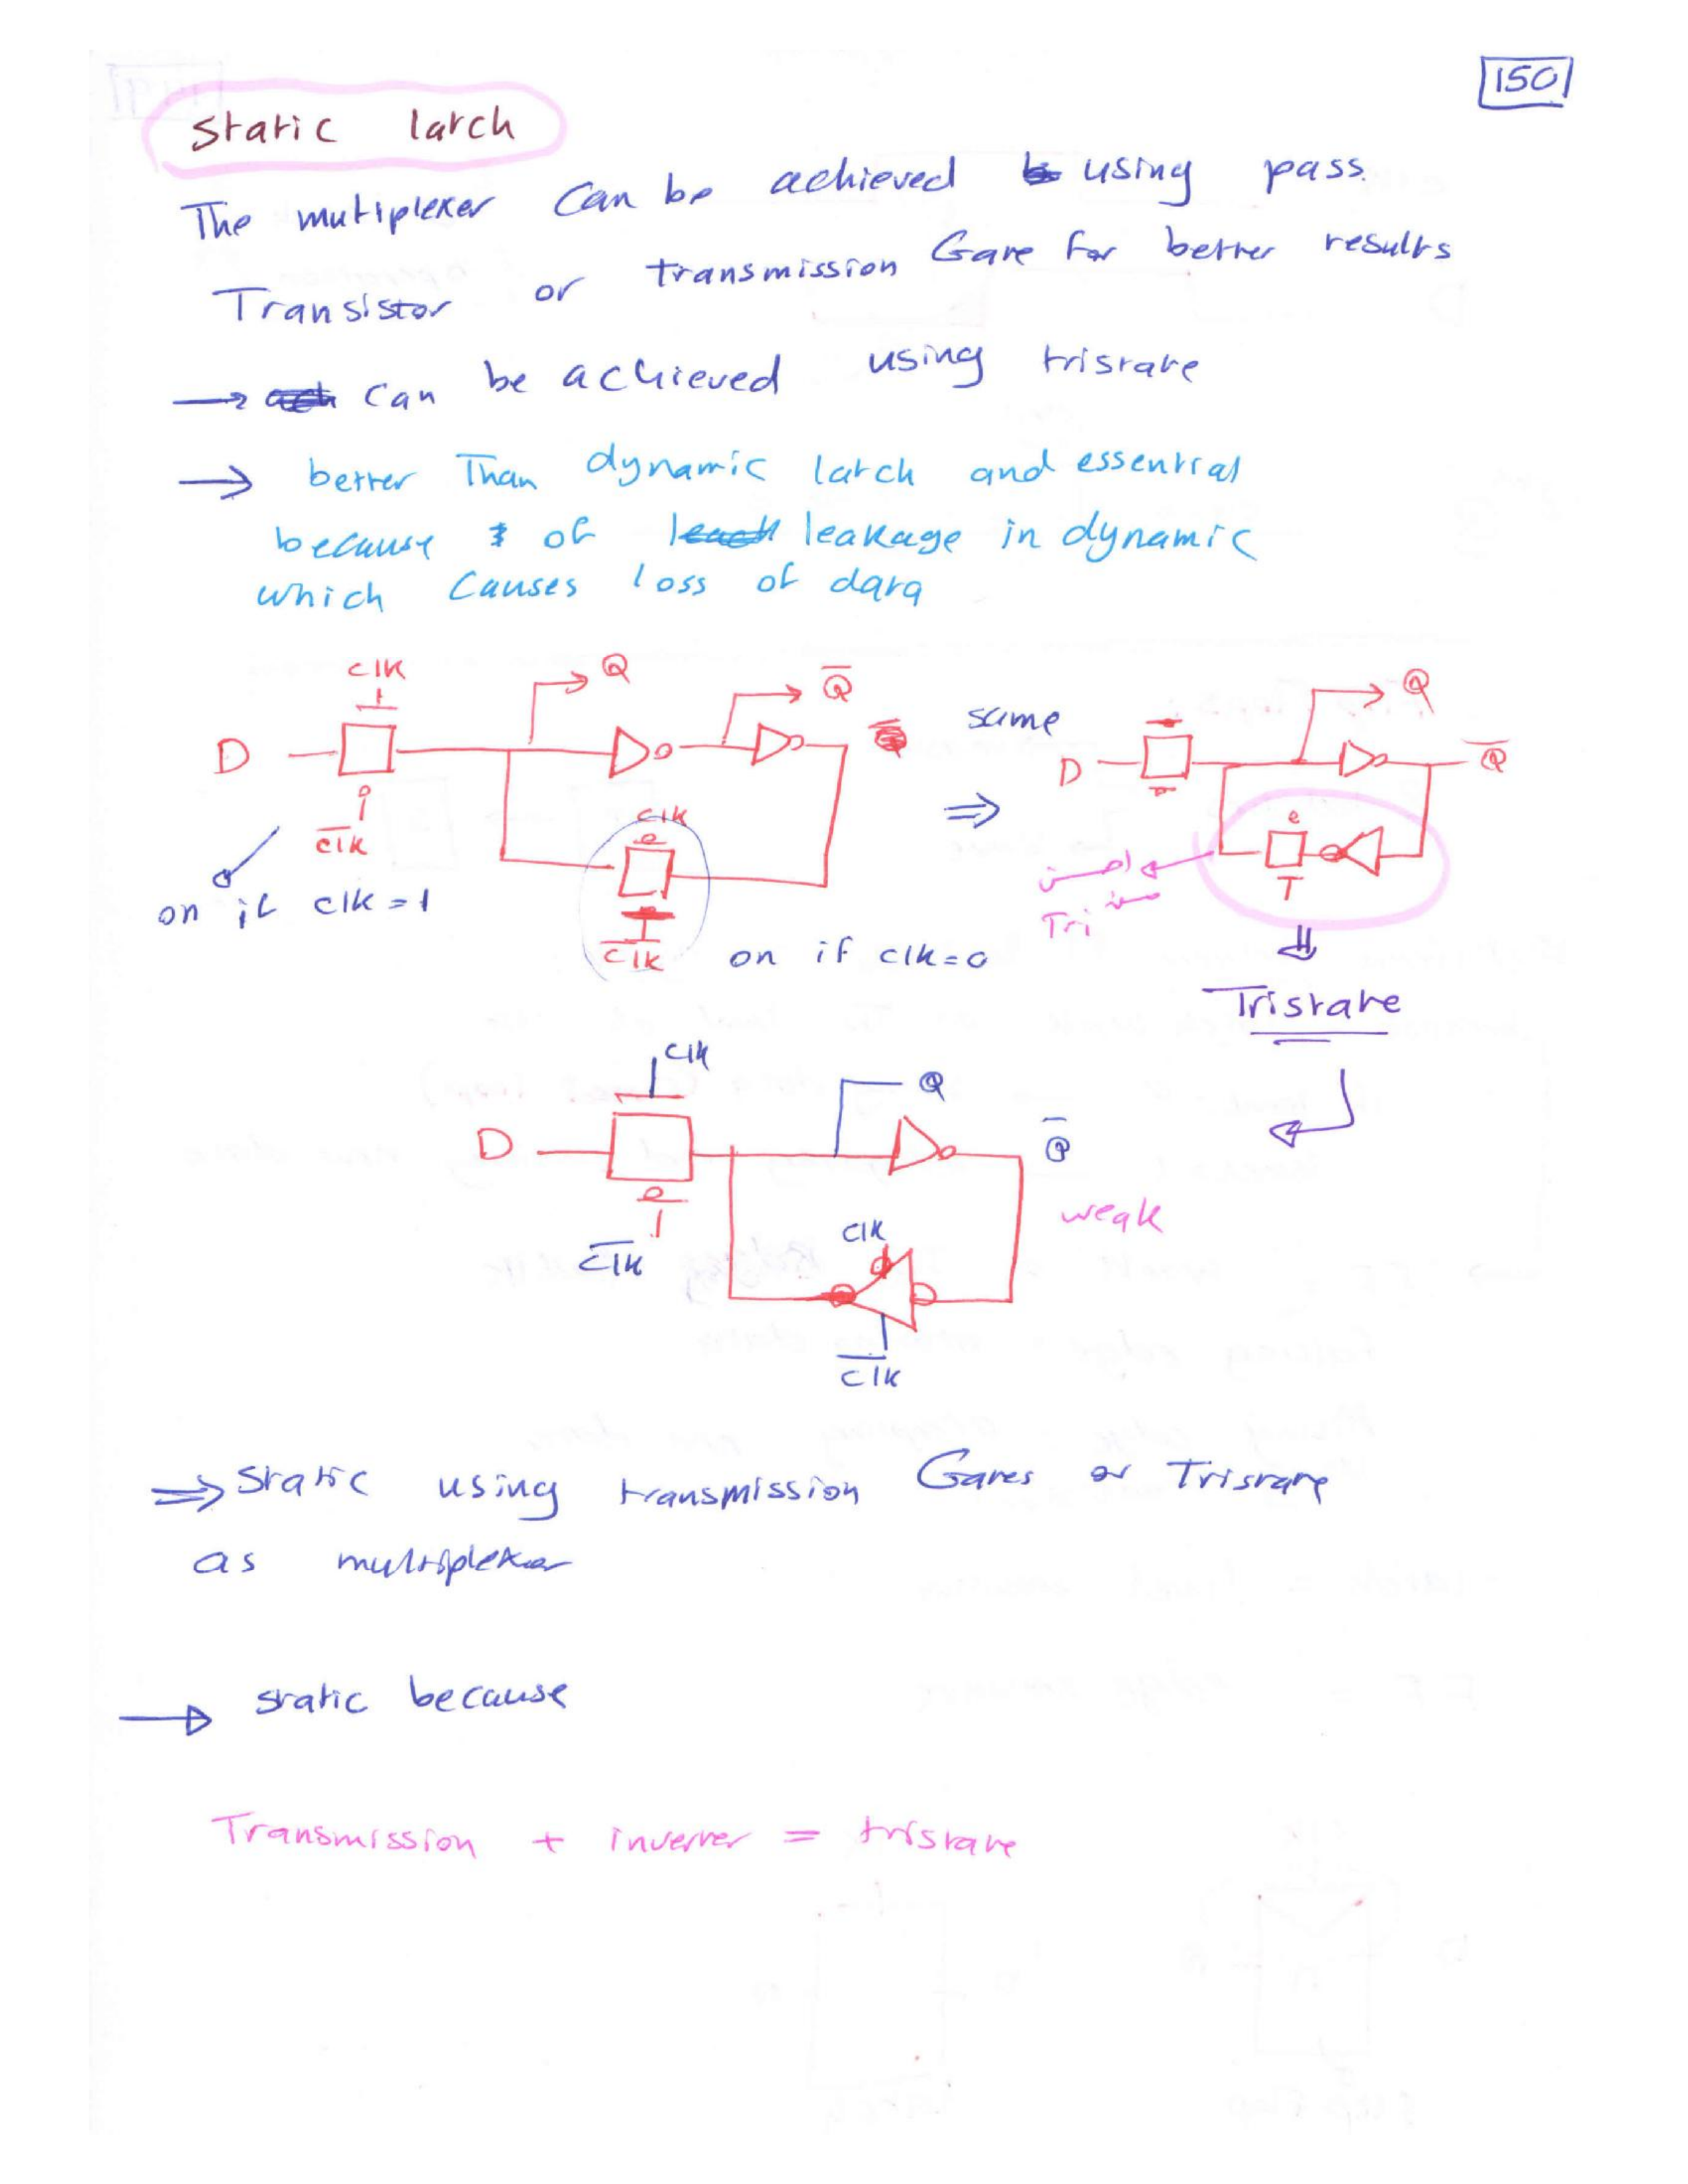 150
static latch
The mutiplexer can be achieved using pass
Transistor or transmission Gate for better results
→ can be achieved using tristate
→ better Than dynamic latch and essential
because of leakage in dynamic
which causes loss of data
clk Q Q̅
D
c̅l̅k̅ clk
on if clk = 1
c̅l̅k̅ on if clk = 0
same
⇒
Q
D Q̅
Tri
Tristate
clk Q
D Q̅
c̅l̅k̅ weak
clk
c̅l̅k̅
⇒ static using transmission Gates or Tristate
as multiplexer
→ static because
Transmission + inverter = tristate